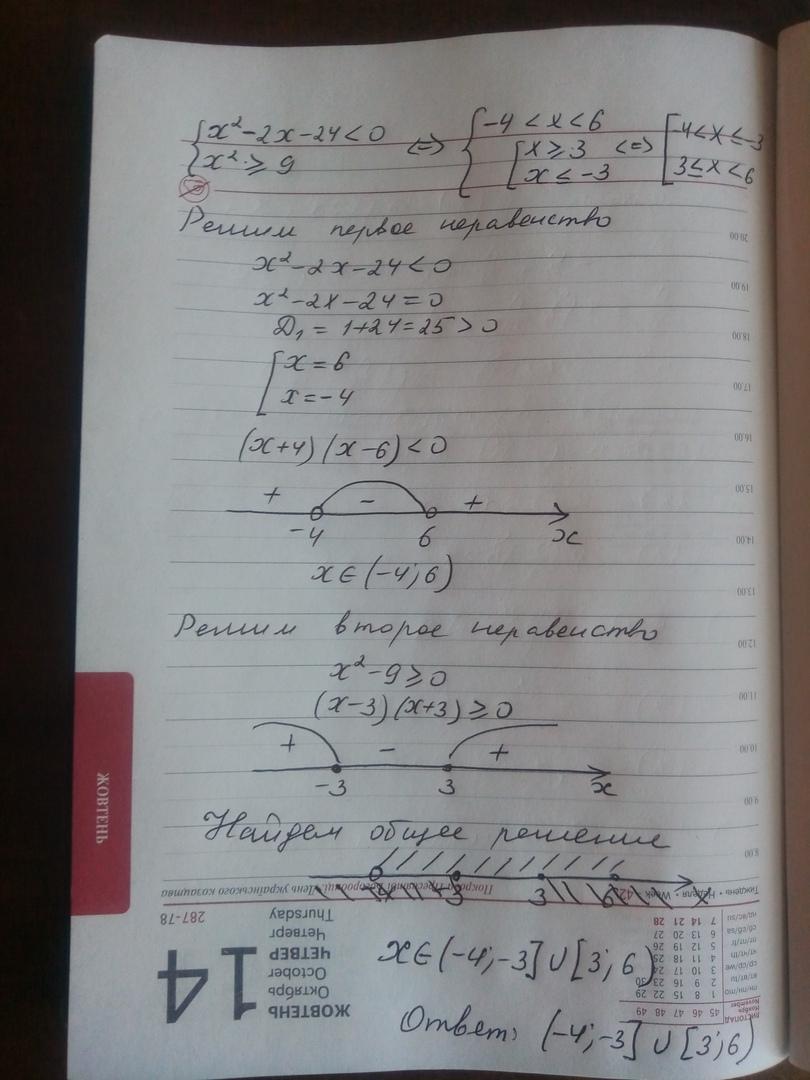 {x²-2x-24<0 <=> {-4<x<6
{x²≥9 [x≥3 <=> [-4<x≤-3
[x≤-3 [3≤x<6
Решим первое неравенство
x²-2x-24<0
x²-2x-24=0
D₁=1+24=25>0
[x=6
[x=-4
(x+4)(x-6)<0
+ - +
-4 6 x
x∈(-4;6)
Решим второе неравенство
x²-9≥0
(x-3)(x+3)≥0
+ - +
-3 3 x
Найдем общее решение
-4 -3 3 6 x
x∈(-4;-3]∪[3;6)
Ответ: (-4;-3]∪[3;6)
20.00
19.00
18.00
17.00
16.00
15.00
14.00
13.00
12.00
11.00
10.00
9.00
8.00
ЖОВТЕНЬ
Тиждень • Неделя • Week • 42
Покров Пресвятої Богородиці. День українського козацтва
287-78
14
ЖОВТЕНЬ
Октябрь
October
ЧЕТВЕР
Четверг
Thursday
ЛИСТОПАД
Ноябрь
November
45 46 47 48 49
пн/пн/mo 1 8 15 22 29
вт/вт/tu 2 9 16 23 30
ср/ср/we 3 10 17 24
чт/чт/th 4 11 18 25
пт/пт/fr 5 12 19 26
сб/сб/sa 6 13 20 27
нд/вс/su 7 14 21 28